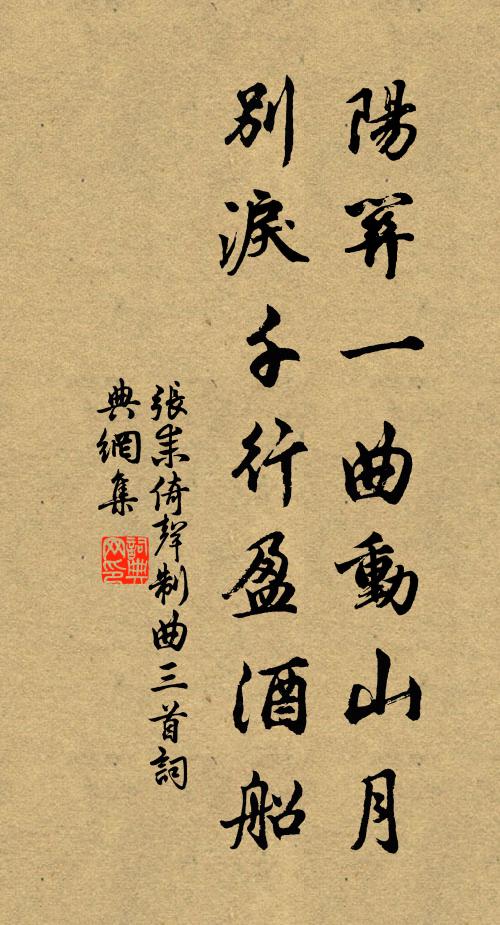 陽關一曲動山月
別淚千行盈酒船
張耒倚聲制曲三首詞
典網集
詞典
网印